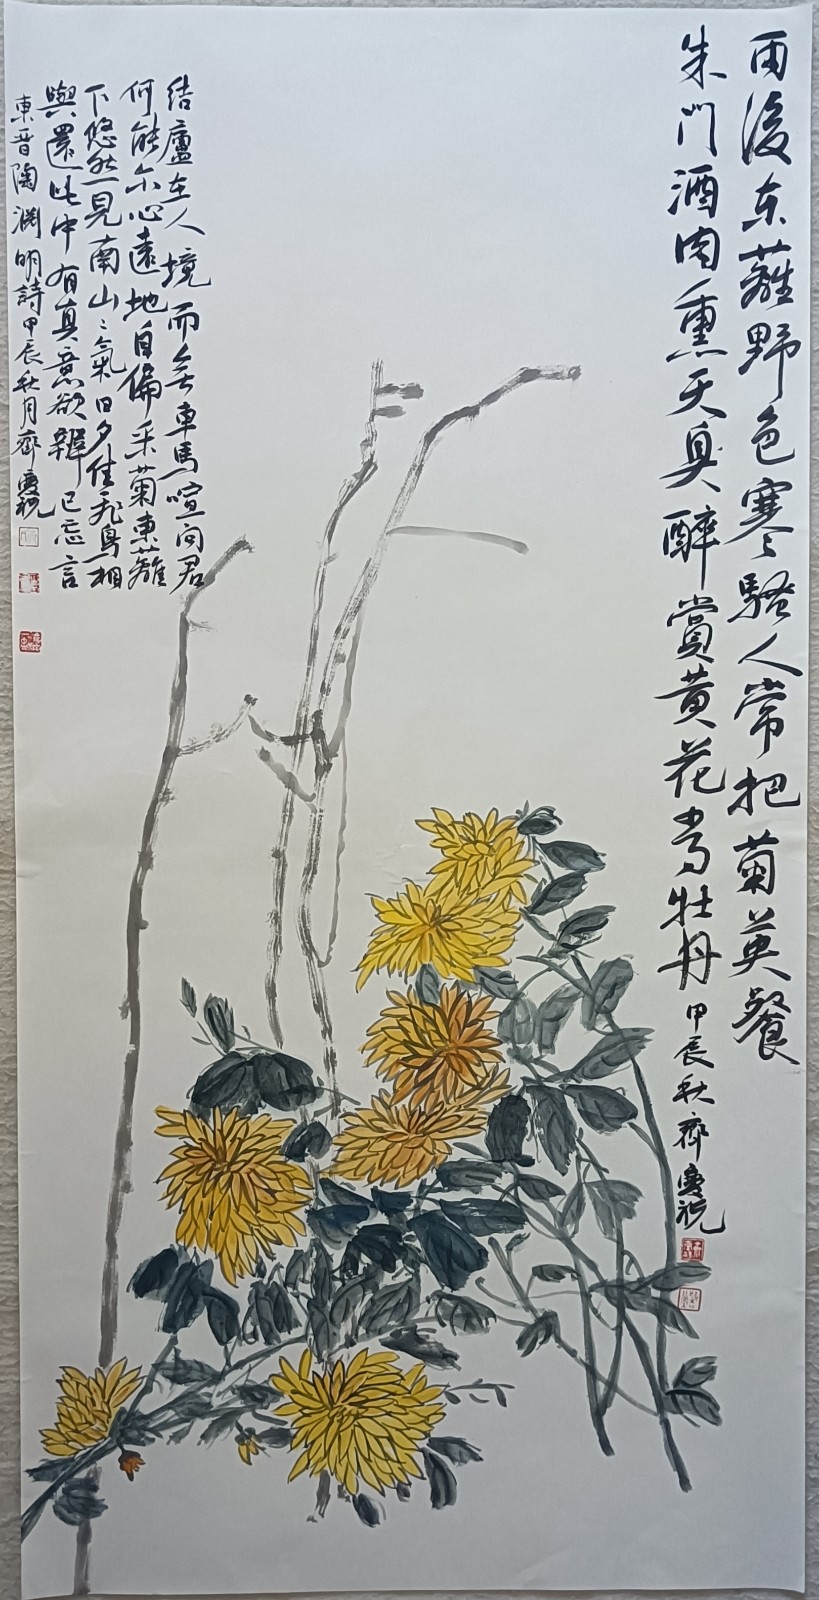 雨後东蓠野色寒骚人常把菊英餐
朱门酒肉熏天臭醉赏黄花当牡丹
甲辰秋齊慶祝
结廬在人境而无車馬喧问君
何能尔心遠地自偏采菊東蓠
下悠然见南山山氣日夕佳飛鳥相
與還此中有真意欲辯已忘言
東晋陶渊明詩甲辰秋月齊慶祝